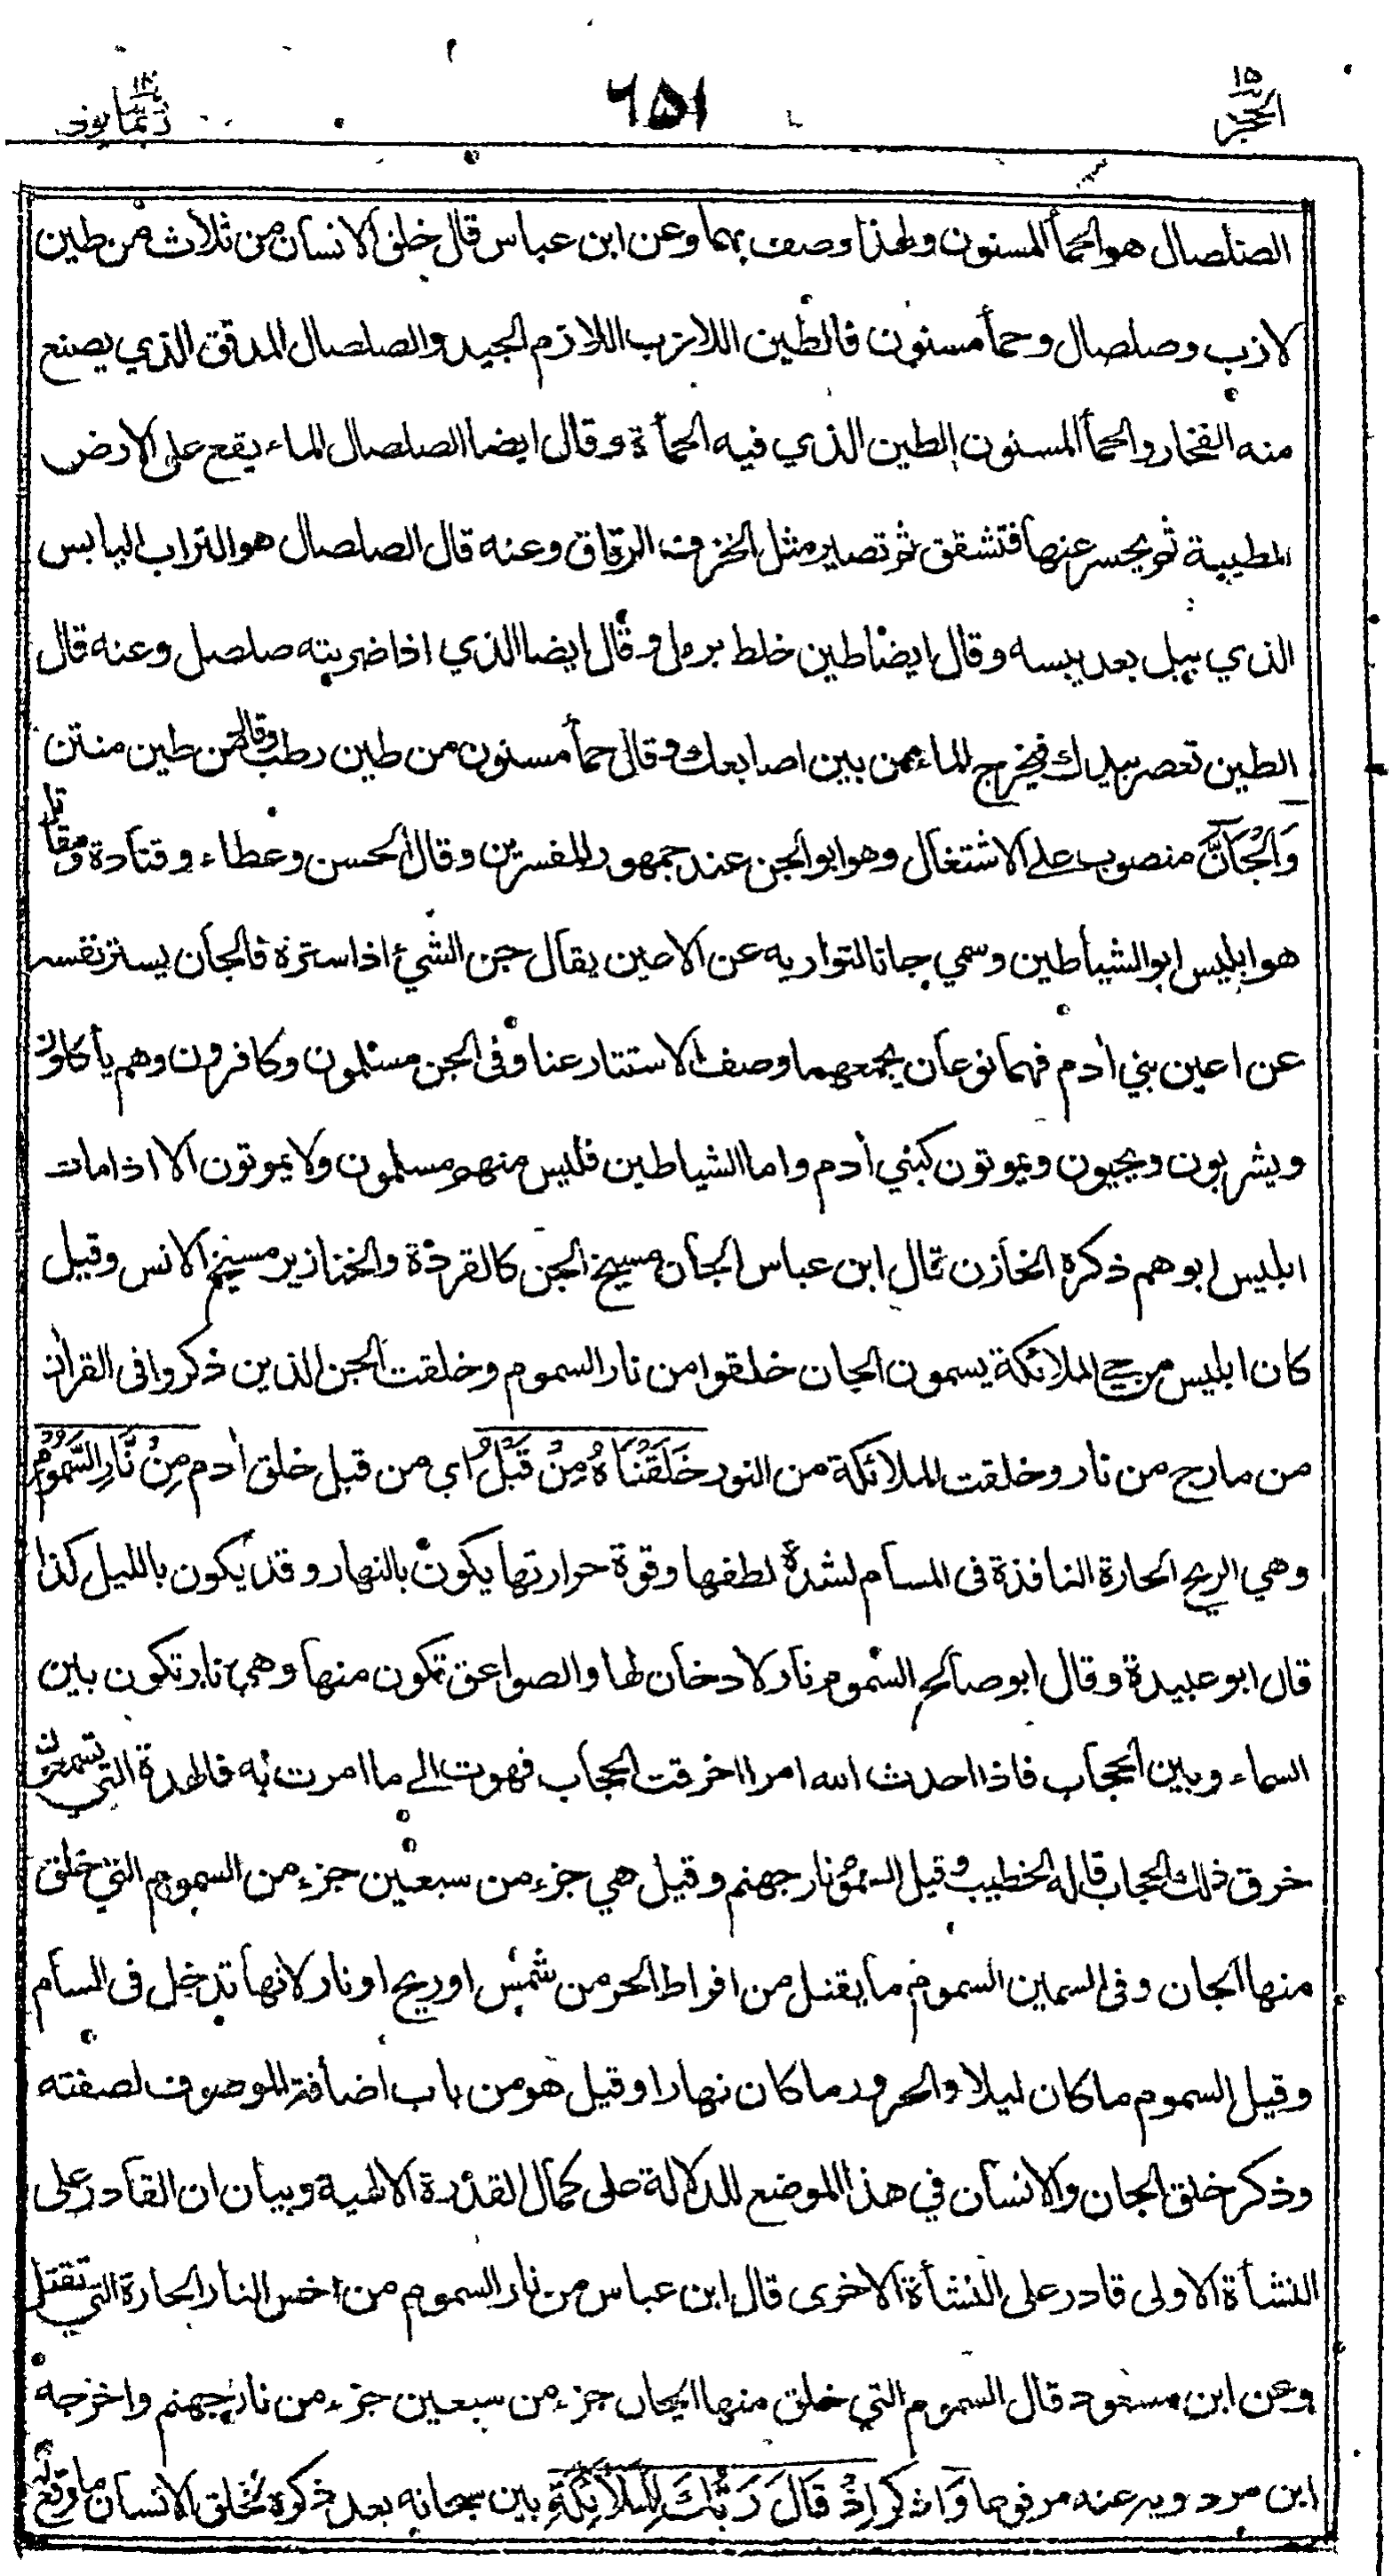 الحجر ١٥
٦٥١
ربما ١٤
الصلصال هو الحمأ المسنون ولهذا وصف بهما وعن ابن عباس قال خلق الانسان من ثلاث من طين
لازب وصلصال وحمأ مسنون فالطين اللازب اللازم الجيد والصلصال المدقق الذي يصنع
منه الفخار والحمأ المسنون الطين الذي فيه الحمأة وقال ايضا الصلصال الماء يقع على الارض
الطيبة ثم يحسر عنها فتشقق ثم تصير مثل الخزف الرقاق وعنه قال الصلصال هو التراب اليابس
الذي يبل بعد يبسه وقال ايضا طين خلط برمل وقال ايضا الذي اذا ضربته صلصل وعنه قال
الطين تعصر بيدك فيخرج الماء من بين اصابعك وقال حمأ مسنون من طين رطب وقال من طين منتن
وَالْجَآنَّ منصوب على الاشتغال وهو ابو الجن عند جمهور المفسرين وقال الحسن وعطاء وقتادة ومقاتل
هو ابليس ابو الشياطين وسمي جانا لتواريه عن الاعين يقال جن الشيء اذا ستره فالجان يستر نفسه
عن اعين بني أدم فهما نوعان يجمعهما وصف الاستتار عنا وفى الجن مسلمون وكافرون وهم يأكلون
ويشربون ويحيون ويموتون كبني أدم واما الشياطين فليس منهم مسلمون ولا يموتون الا اذا مات
ابليس ابوهم ذكره الخازن قال ابن عباس الجان مسيخ الجن كالقردة والخنازير مسيخ الانس وقيل
كان ابليس من حي الملائكة يسمون الجان خلقوا من نار السموم وخلقت الجن الذين ذكروا فى القرأن
من مارج من نار وخلقت الملائكة من النور خَلَقْنَاهُ مِنْ قَبْلُ اي من قبل خلق أدم مِنْ نَّارِ السَّمُوْمِ
وهي الريح الحارة النافذة فى المسام لشدة لطفها وقوة حرارتها يكون بالنهار وقد يكون بالليل كذا
قال ابو عبيدة وقال ابو صالح السموم نار لا دخان لها والصواعق تكون منها وهي نار تكون بين
السماء وبين الحجاب فاذا احدث الله امرا اخرقت الحجاب فهوت الى ما امرت به فالهدة التي تسمعون
خرق ذلك الحجاب قاله الخطيب وقيل السموم نار جهنم وقيل هي جزء من سبعين جزء من السموم التي خلق
منها الجان وفى السمين السموم ما يقتل من افراط الحر من شمس او ريح او نار لانها تدخل فى المسام
وقيل السموم ما كان ليلا والحرور ما كان نهارا وقيل هو من باب اضافة الموصوف لصفته
وذكر خلق الجان والانسان في هذا الموضع للدلالة على كمال القدرة الالهية وبيان ان القادر على
النشأة الاولى قادر على النشأة الاخرى قال ابن عباس من نار السموم من احس النار الحارة التي تقتل
وعن ابن مسعود قال السموم التي خلق منها الجان جزء من سبعين جزء من نار جهنم واخرجه
ابن مردويه عنه مرفوعا وَاذكر اِذْ قَالَ رَبُّكَ لِلْمَلَآئِكَةِ بين سبحانه بعد ذكره لخلق الانسان ما وقع